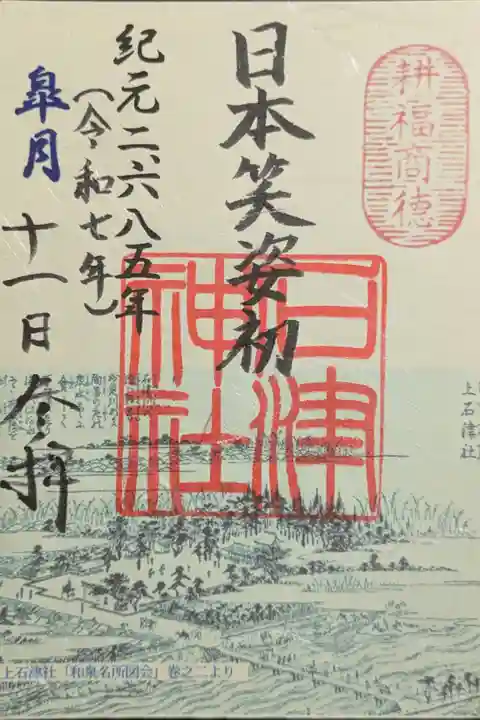 耕福商徳
日本笑姿初
紀元二、六八五年
(令和七年)
皐月
十一日参拝
石津
神社
上石津社
上石津社「和泉名所図会」巻之二より